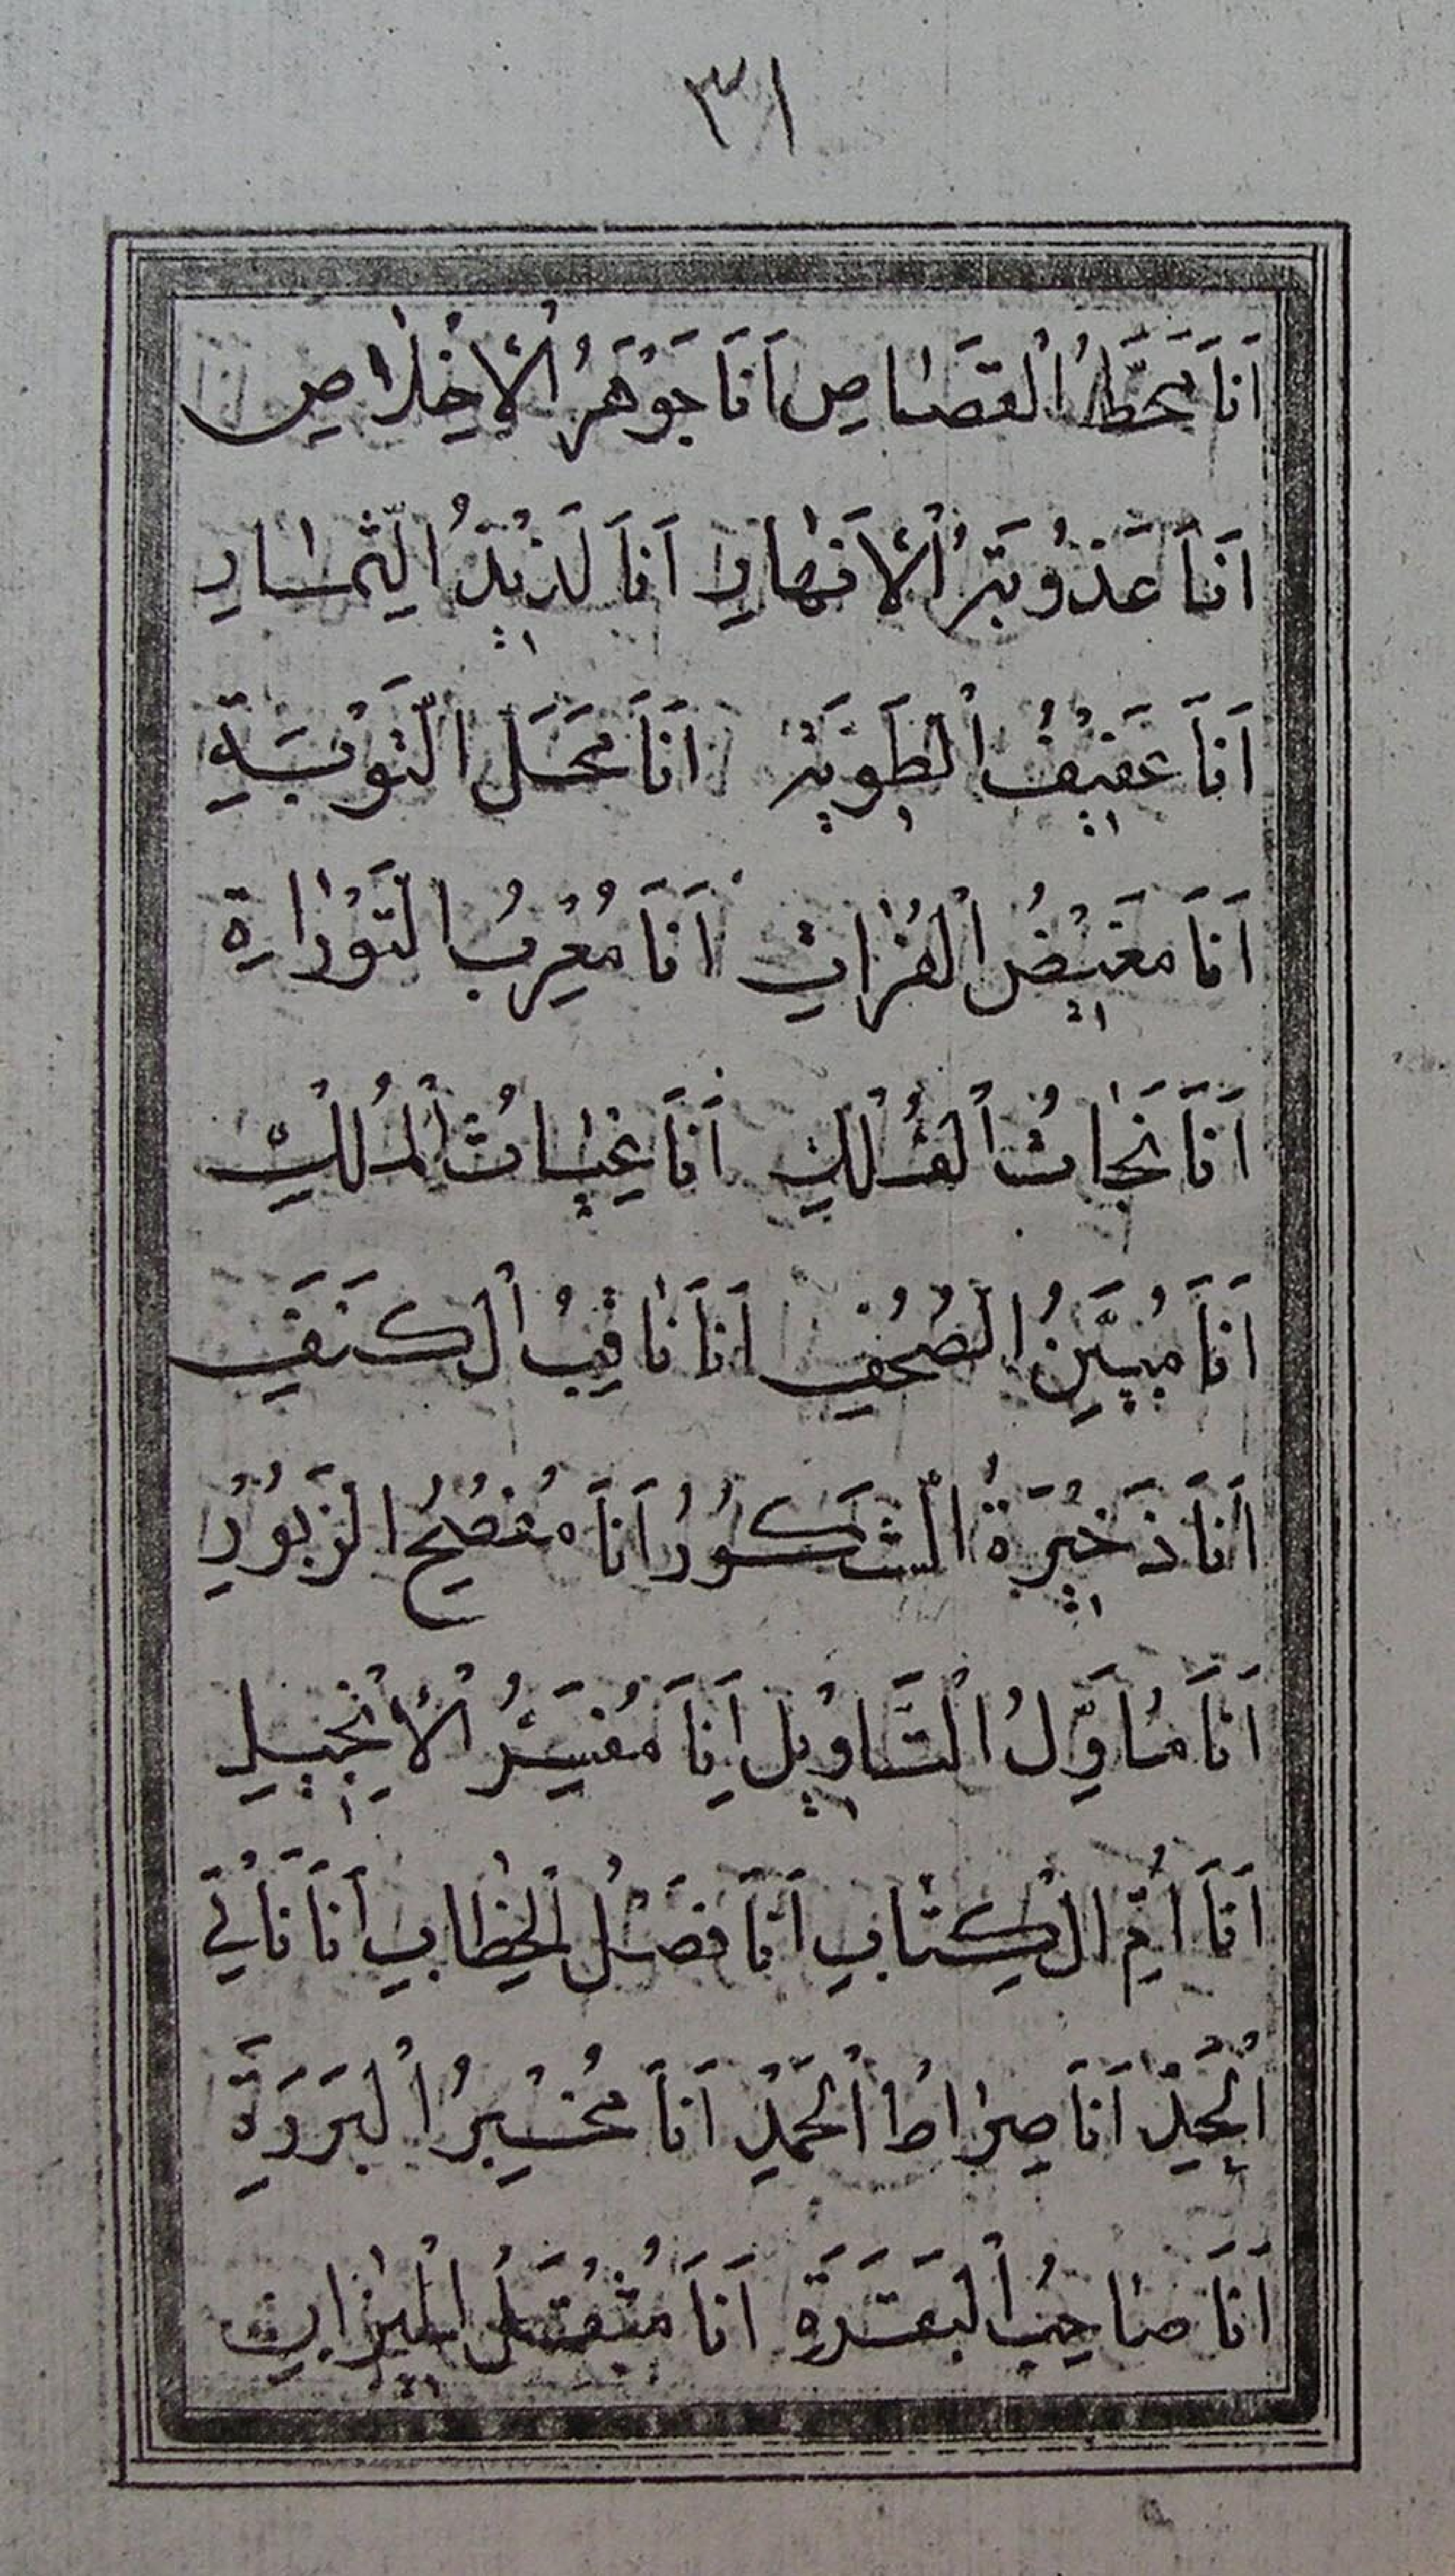 ٣١
اَنَا مَحَطُّ الْقَصَاصِ اَنَا جَوْهَرُ الْاِخْلَاصِ
اَنَا عَذُوبَةُ الْاَنْهَارِ اَنَا لَذِيْذُ الثِّمَارِ
اَنَا عَفِيْفُ الْطَوِيَة اَنَا مَحَلُ التَّوْبَةِ
اَنَا مَغِيْضُ الْفُرَاتِ اَنَا مُعْرِبُ التَّوْرَاةِ
اَنَا نَجَاتُ الْفُلْكِ اَنَا غِيَاثُ الْمُلْكِ
اَنَا مُبَيِّنُ الصُحُفِ اَنَا ثَاقِبُ الْكَنَفِ
اَنَا ذَخِيْرَةُ الشَّكُورُ اَنَا مُفْصِحُ الزَبُوْرِ
اَنَا مُاَوِّلُ الْتَّاوِيْلِ اَنَا مُفَسِّرُ الْاِنْجِيْلِ
اَنَا اُمِّ الْكِتَابِ اَنَا فَصْلُ الْخِطَابِ اَنَا
اَنَا صِرَاطُ الْحَمْدِ اَنَا الْبَرَرَةِ
اَنَا صَاحِبُ الْبَقَرَةِ اَنَا مُثْقِلُ الْمِيْزَانِ